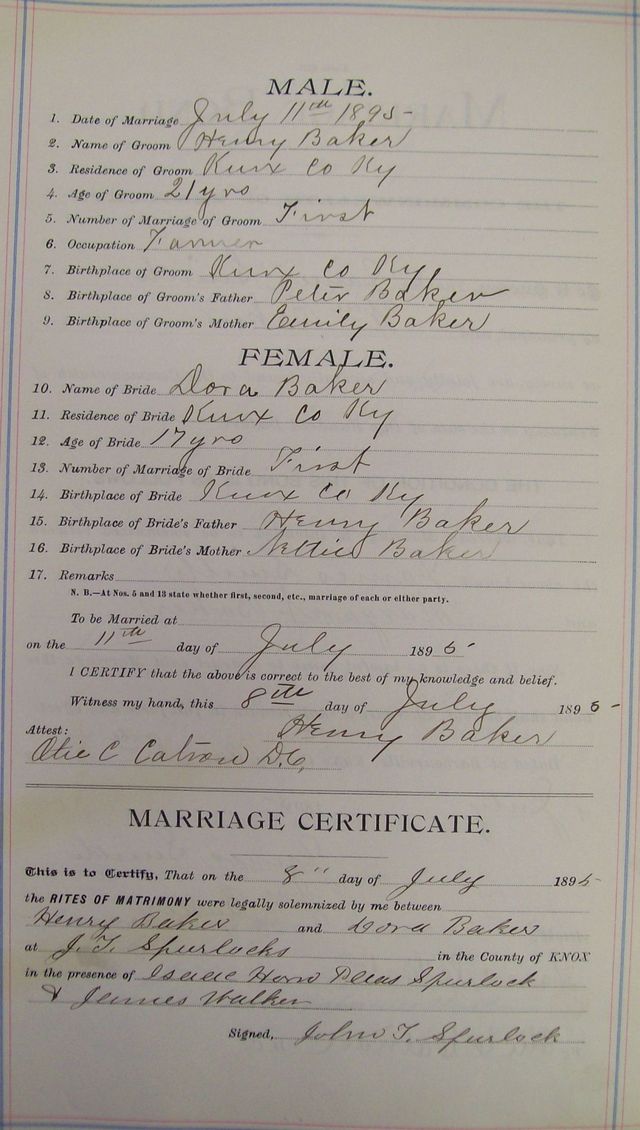 MALE.
1. Date of Marriage July 11th 1895-
2. Name of Groom Henry Baker
3. Residence of Groom Knox Co Ky
4. Age of Groom 21 yrs
5. Number of Marriage of Groom First
6. Occupation Farmer
7. Birthplace of Groom Knox Co Ky
8. Birthplace of Groom's Father Peter Baker
9. Birthplace of Groom's Mother Emily Baker
FEMALE.
10. Name of Bride Dora Baker
11. Residence of Bride Knox Co Ky
12. Age of Bride 17 yrs
13. Number of Marriage of Bride First
14. Birthplace of Bride Knox Co Ky
15. Birthplace of Bride's Father Henry Baker
16. Birthplace of Bride's Mother Nettie Baker
17. Remarks
N. B.—At Nos. 5 and 13 state whether first, second, etc., marriage of each or either party.
To be Married at
on the 11th day of July 1895-
I CERTIFY that the above is correct to the best of my knowledge and belief.
Witness my hand, this 8th day of July 1895-
Henry Baker
Attest:
Otie C Catron D.C.
MARRIAGE CERTIFICATE.
This is to Certify, That on the 8" day of July 1895
the RITES OF MATRIMONY were legally solemnized by me between
Henry Baker and Dora Baker
at J. T. Spurlocks in the County of KNOX
in the presence of Isaac Spurlock
& James Walker
Signed, John T. Spurlock